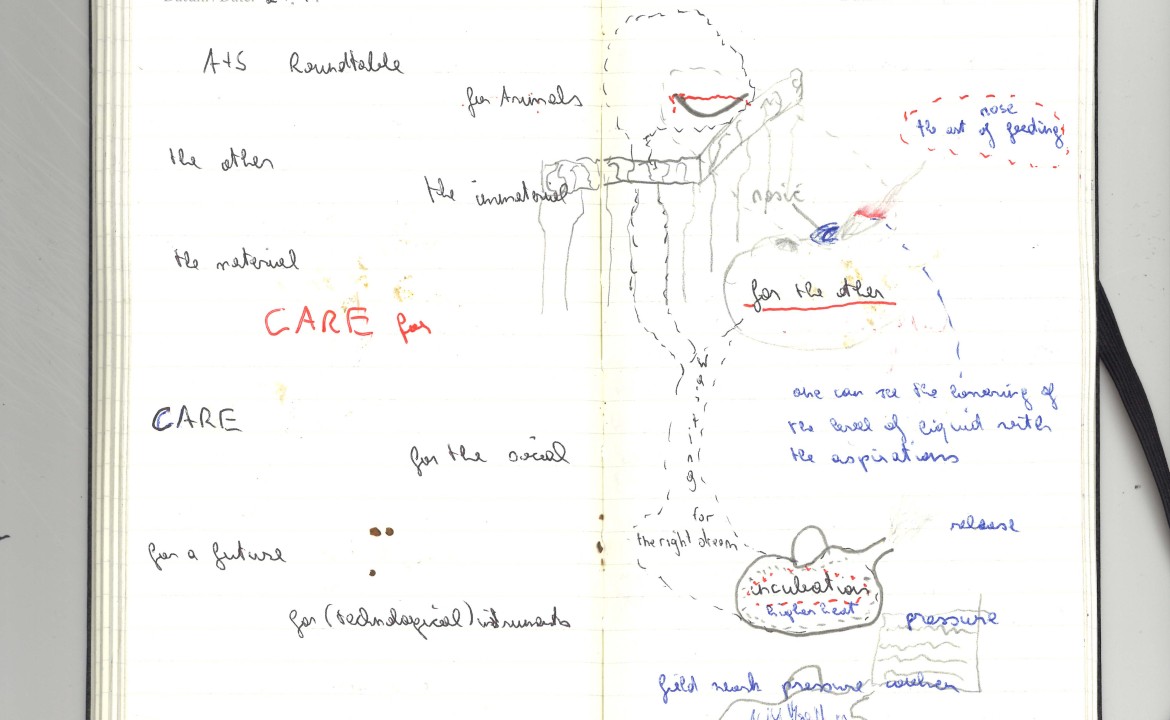 A+S Roundtable
for Animals
the other
the immaterial
the material
CARE for
CARE
for the social
for a future
for (technological) instruments
nose
the art of feeding
for the other
one can see the lowering of
the level of liquid with
the aspirations
waiting
for
the right dream
release
incubation
higher heat
pressure
field pressure cooker